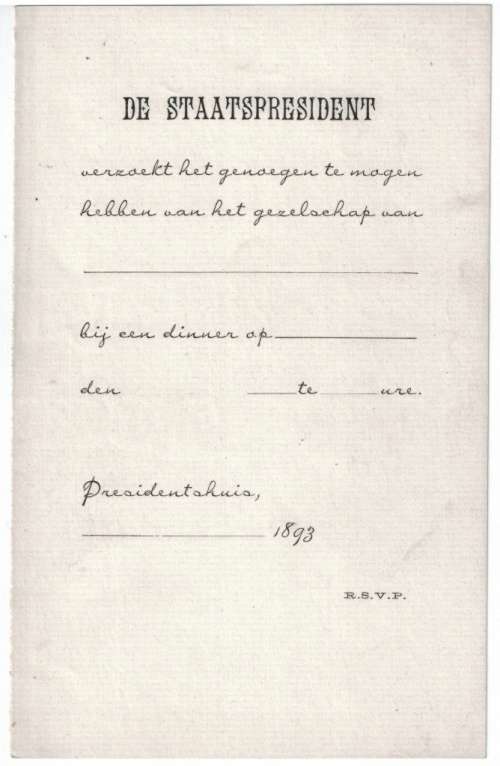 DE STAATSPRESIDENT
verzoekt het genoegen te mogen
hebben van het gezelschap van
bij een dinner op
den te ure.
Presidentshuis,
1893
R.S.V.P.